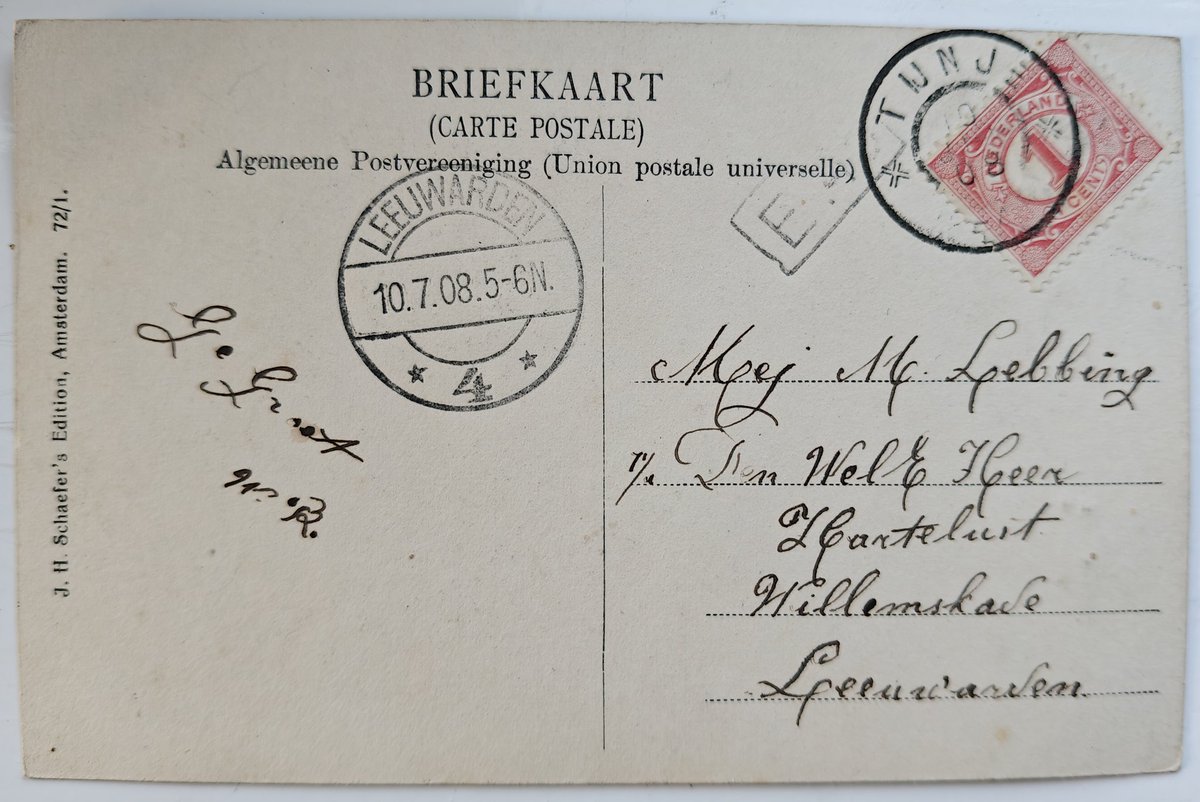 BRIEFKAART
(CARTE POSTALE)
Algemeene Postvereeniging (Union postale universelle)
TIJNJE
NEDERLAND
1
CENT
E
LEEUWARDEN
10.7.08.5-6N.
4
J. H. Schaefer's Edition, Amsterdam. 72/1.
Groet
Mej M. Lebbing
Den WelE Heer
Hartelust
Willemskade
Leeuwarden